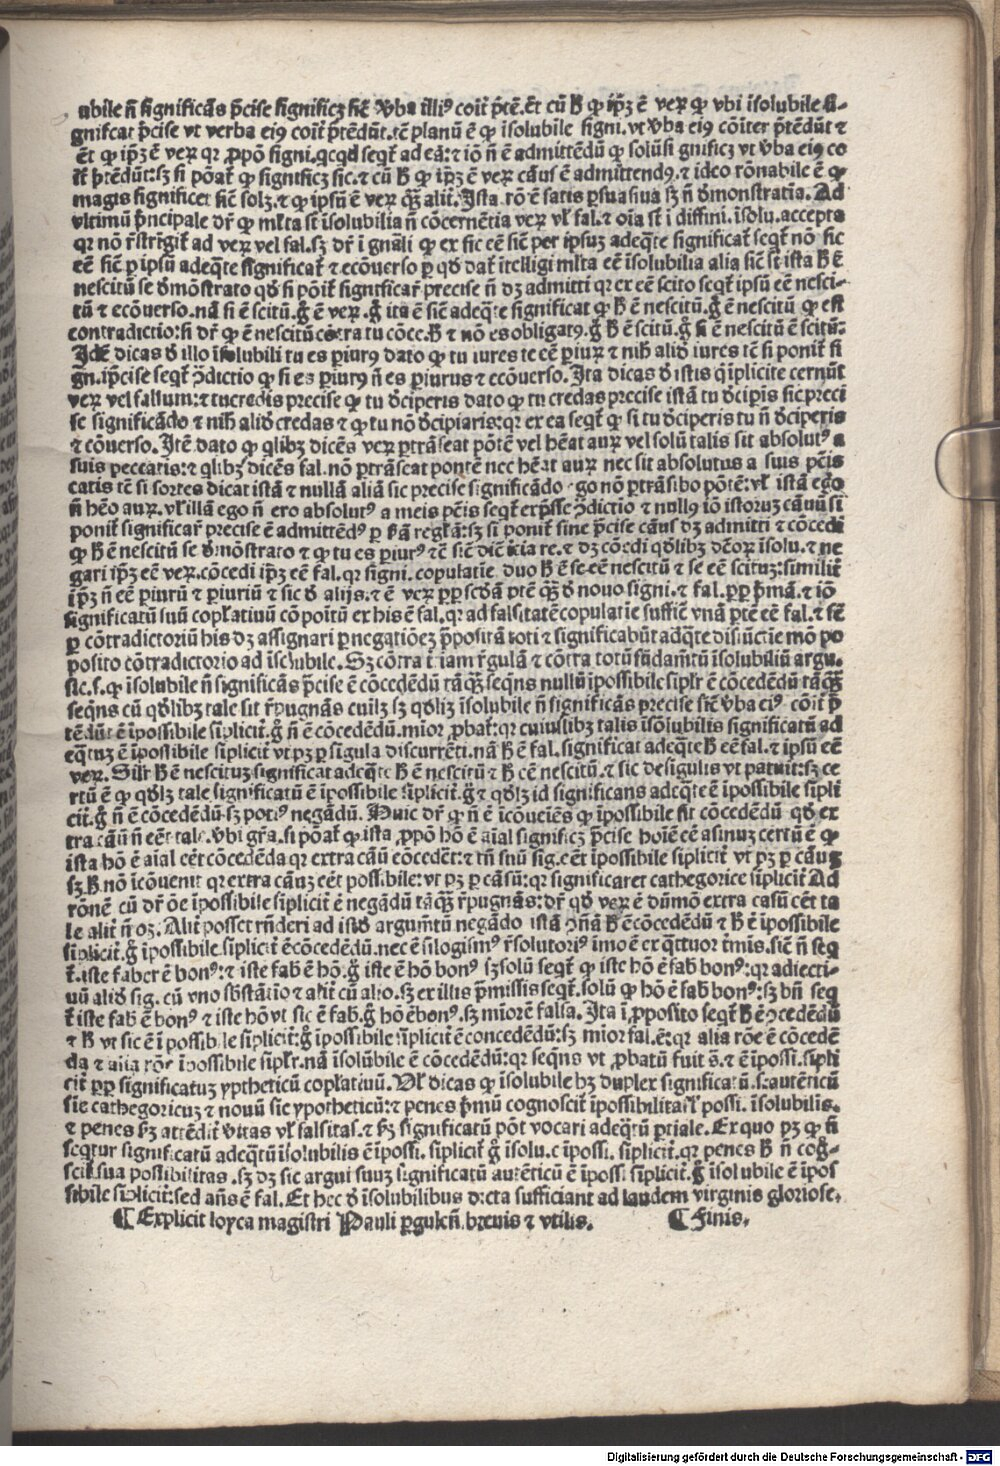 ubile n̄ significās p̄cise significꝫ sic̄ v̓ba illiꝰ coit̄ p̄tē. Et cū B ꝙ ip̄ꝫ ē veꝝ ꝙ vbi īsolubile si-
gnificat p̄cise vt verba eiꝰ coit̄ p̄tēdūt. tē planū ē ꝙ īsolubile signi. vt v̓ba eiꝰ cōiter p̄tēdūt ⁊
ēt ꝙ ip̄ꝫ ē veꝝ qꝛ ꝓpō signi. qcqd seqt̄ ad eā: ⁊ iō n̄ ē admittēdū ꝙ solū si gnificꝫ vt v̓ba eiꝰ co
it̄ p̄tēdūt: sꝫ si pōat̄ ꝙ significꝫ sic. ⁊ cū B ꝙ ip̄ꝫ ē veꝝ cāus ē admittendꝰ. ⁊ ideo rōnabile ē ꝙ
magis significet sic̄ solꝫ. ⁊ ꝙ ipsū ē veꝝ qꝫ̄ alit̄. Ista rō ē satis ꝑsuasiua sꝫ n̄ d̓monstratia. Ad
vltimū p̄ncipale dr̄ ꝙ ml̄ta st̄ īsolubilia n̄ cōcernētia veꝝ vl̄ fal. ⁊ oīa st̄ ī diffini. īsolu. accepta
qꝛ nō r̄strīgit̄ ad veꝝ vel fal. sꝫ dr̄ ī gn̄ali ꝙ ex sic eē sic̄ per ipsuꝫ adeq̄te significat̄ seqt̄ nō sic
eē sic̄ ꝑ ipsū adeq̄te significat̄ ⁊ ecōuerso ꝑ qd̓ dat̄ ītelligi ml̄ta eē īsolubilia alia sic̄ st̄ ista B ē
nescitū se d̓mōstrato qd̓ si pōit̄ significar̄ precise n̄ dꝫ admitti qꝛ ex eē scito seqt̄ ipsū eē nesci-
tū ⁊ ecōuerso. nā si ē scitū. g̊ ē veꝝ. g̊ ita ē sic̄ adeq̄te significat ꝙ B ē nescitū. g̊ ē nescitū ꝙ est
contradictio: si dr̄ ꝙ ē nescitū cōtra tu cōce. B ⁊ nō es obligatꝰ. g̊ B ē scitū. g̊ si ē nescitū ē scitū:
Idē dicas d̓ illo īsolubili tu es ꝑiurꝰ dato ꝙ tu iures te eē ꝑiuꝝ ⁊ nih̄ alid̓ iures tē si ponit̄ si
gn. īp̄cise seqt̄ ꝯdictio ꝙ si es ꝑiurꝰ n̄ es ꝑiurus ⁊ ecōuerso. Ita dicas d̓ istis q̄ īplicite cernūt
veꝝ vel falsum: ⁊ tu credis precise ꝙ tu d̓ciperis dato ꝙ tu credas precise istā tu d̓cipis sic preci
se significādo ⁊ nih̄ alid̓ credas ⁊ ꝙ tu nō d̓cipiaris: qꝛ ex ea seqt̄ ꝙ si tu d̓ciperis tu n̄ d̓ciperis
⁊ cōuerso. Itē dato ꝙ qlibꝫ dicēs veꝝ ꝑtrāseat pōtē vel hēat auꝝ vel solū talis sit absolutꝰ a
suis peccatis: ⁊ qlibꝫ dicēs fal. nō ꝑtrāseat pontē nec hēat auꝝ nec sit absolutus a suis pc̄is
catis tē si sortes dicat istā ⁊ nullā aliā sic precise significādo ego nō ꝑtrāsibo pōtē: vl̄ istā ego
n̄ hēo auꝝ. vl̄ illā ego n̄ ero absolutꝰ a meis pc̄is seqt̄ exp̄sse ꝯdictio ⁊ nullꝰ iō istoruꝫ cāuū si
ponit̄ significar̄ precise ē admittēdꝰ ꝑ p̄ā regl̄ā: sꝫ si ponit̄ sine p̄cise cāus dꝫ admitti ⁊ cōcedi
ꝙ B ē nescitū se d̓mōstrato ⁊ ꝙ tu es ꝑiurꝰ ⁊ē sic̄ diē icia re. ⁊ dꝫ cōcdi qd̓libꝫ dc̄oꝝ īsolu. ⁊ ne
gari ip̄ꝫ eē veꝝ. cōcedi ip̄ꝫ eē fal. qꝛ signi. copulatīe duo B ē se eē nescitū ⁊ se eē scituꝫ: similit̄
ip̄ꝫ n̄ eē ꝑiurū ⁊ ꝑiuriū ⁊ sic d̓ alijs. ⁊ ē veꝝ ꝓꝑ scd̓ā ptē qꝫ̄ d̓ nouo signi. ⁊ fal. ꝓꝑ p̄mā. ⁊ iō
significatū suū copl̄atiuū cōpoitū ex his ē fal. qꝛ ad falsitatē copulatīe suffic̄ vnā ptē eē fal. ⁊ sic̄
ꝑ cōtradictoriū his dꝫ assignari ꝑ negatiōeꝫ p̄positā toti ⁊ significabūt adq̄te disiūctīe mō po
posito cōtradictorio ad īsolubile. Sꝫ cōtra ī. iam r̄gulā ⁊ cōtra totū fūdam̄tū īsolubiliū argu.
sic. s. ꝙ īsolubile n̄ significās p̄cise ē cōcedēdū tāqꝫ̄ seqn̄s nullū īpossibile siplr̄ ē cōcedēdū tāqꝫ̄
seqn̄s cū qd̓libꝫ tale sit r̄pugnās cuilꝫ sꝫ qd̓lꝫ īsolubile n̄ significās precise sic̄ v̓ba eiꝰ cōit̄ p̄
tēdūt ē īpossibile sīplicit̄. g̊ n̄ ē cōcedēdū. mīor ꝓbat̄: qꝛ cuiuslibꝫ talis īsolubilis significatū ad
eq̄tuꝫ ē īpossibile sīplicit̄ vt pꝫ ꝑ sīgula discurrēti. nā B ē fal. significat adeq̄te B eē fal. ⁊ ipsū eē
veꝝ. Silr̄ B ē nescituꝫ significat adeq̄te B ē nescitū ⁊ B eē nescitū. ⁊ sic de sīgulis vt patuit: sꝫ ce
rtū ē ꝙ qd̓lꝫ tale significatū ē īpossibile sīplicit̄. g̊ ⁊ qd̓lꝫ id significans adeq̄te ē īpossibile sīpli
cit̄. g̊ n̄ ē cōcedēdū sꝫ potiꝰ negādū. Huic dr̄ ꝙ n̄ ē īcōueiēs ꝙ īpossibile sit cōcedēdū qd̓ ex
tra cāū n̄ eēt tale. v̓bi gr̄a. si pōat̄ ꝙ ista ꝓpō hō ē aīal significꝫ p̄cise hoīē eē asinuꝫ certū ē ꝙ
ista hō ē aīal eēt cōcedēda qꝛ extra cāū cōcedēt: ⁊ tn̄ suū sig. eēt īpossibile sīplicit̄ vt pꝫ ꝑ cāuꝫ
sꝫ B nō īcōuenit qꝛ extra cāuꝫ eēt possibile: vt pꝫ ꝑ cāsū: qꝛ significaret cathegorice sīplicit̄ Ad
rōnē cū dr̄ oē īpossibile sīplicit̄ ē negādū tāqꝫ̄ r̄pugnās: dr̄ qd̓ veꝝ ē dūmō extra casū eēt ta
le alit̄ n̄ oꝫ. Alit̄ posset rn̄deri ad isd̓ argum̄tū negādo istā ꝯn̄ā B ē cōcedēdū ⁊ B ē īpossibile
sīplicit̄. g̊ īpossibile sīplicit̄ ē cōcedēdū. nec ē silogismꝰ r̄solutoriꝰ īmo ē ex q̄ttuor t̄mīs. sic̄ n̄ seq
t̄. iste faber ē bonꝰ: ⁊ iste fab̓ ē hō. g̊ iste ē hō bonꝰ sꝫ solū seqt̄ ꝙ iste hō ē fab̓ bonꝰ: qꝛ adiecti-
uū alid̓ sig. cū vno sb̄stātīo ⁊ alit̄ cū alio. sꝫ ex illis p̄missis seqt̄. solū ꝙ hō ē fab̓ bonꝰ: sꝫ bn̄ seq
t̄ iste fab̓ ē bonꝰ ⁊ iste hō vt sic ē fab̓. g̊ hō ē bonꝰ. sꝫ mīorē falsa. Ita ī ꝓposito seqt̄ B ē ꝯcedēdū
⁊ B vt sic ē ī possibile sīplicit̄: g̊ īpossibile sīplicit̄ ē concedēdū: sꝫ mīor fal. ē: qꝛ alia rōe ē cōcedē
da ⁊ alia rōe īpossibile siplr̄. nā īsolubile ē cōcedēdū: qꝛ seqn̄s vt ꝓbatū fuit s̄. ⁊ ē īpossi. sīpli
cit̄ ꝓꝑ significatuꝫ ypotheticū copl̄atiuū. Vl̄ dicas ꝙ īsolubile hꝫ duplex significatū. s. autēticū
siē cathegoricuꝫ ⁊ nouū siē ypotheticū: ⁊ penes p̄mū cognoscit̄ īpossibilitas vl̄ possi. īsolubilis.
⁊ penes sꝫ attēdit̄ v̓itas vl̄ falsitas. ⁊ sꝫ significatū pōt vocari adeqtū ꝑtiale. Ex quo pꝫ ꝙ n̄
seqtur significatū adeqtū īsolubilis ē īpossi. sīplicit̄ g̊ īsolu. ē īpossi. sīplicit̄. qꝛ penes B n̄ cog-
scit̄ sua possibilitas. sꝫ dꝫ sic argui suuꝫ significatū autēticū ē īpossi sīplicit̄. g̊ īsolubile ē īpos
sibile sīplicit̄: sed an̄s ē fal. Et hec d̓ īsolubilibus dicta sufficiant ad laudem virginis gloriose.
¶ Explicit loyca magistri Pauli ꝑgulen̄. breuis ⁊ vtilis. ¶ Finis.
Digitalisierung gefördert durch die Deutsche Forschungsgemeinschaft - DFG